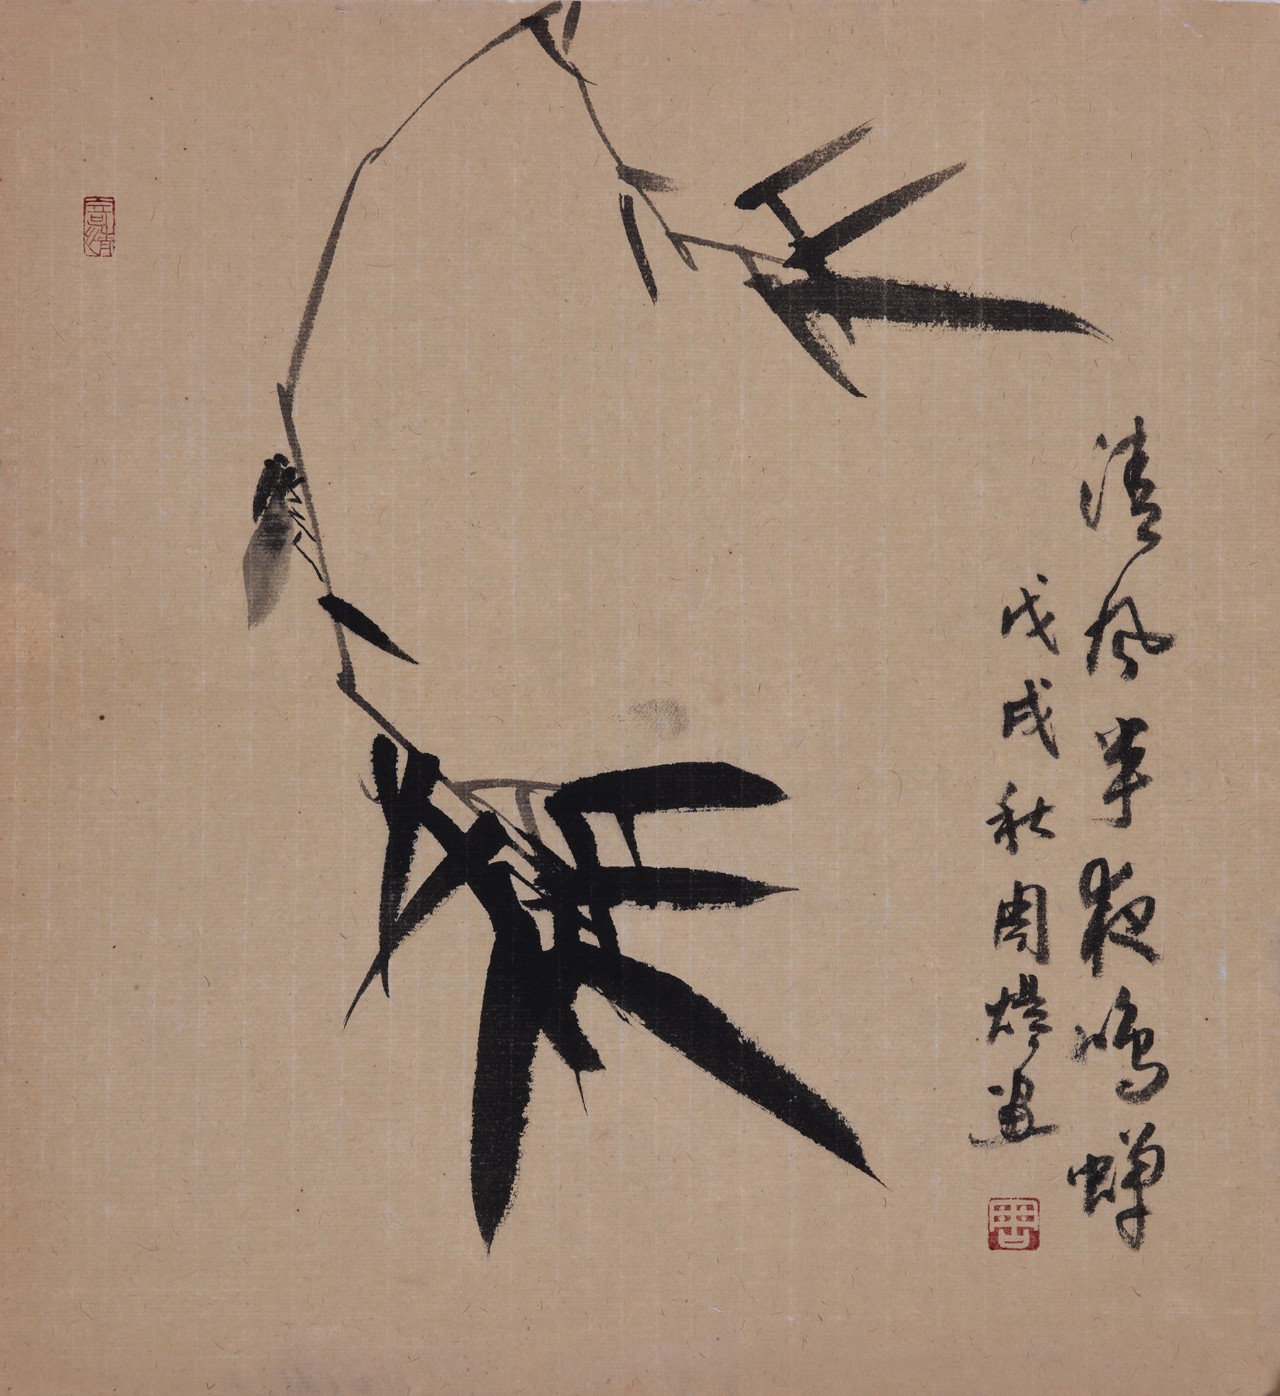 清风半夜鸣蝉
戊戌秋周
画